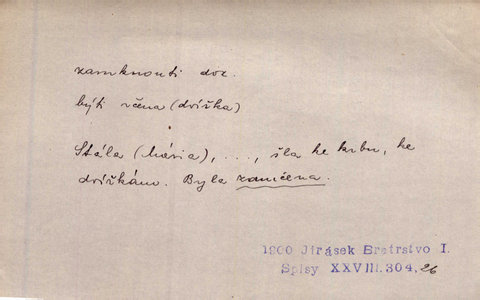 zamknouti dok.
býti věna (dvířka)
Stála (Mária), ..., šla ke krbu, ke
dvířkám. Byla zamčena.
1900 Jirásek Bratrstvo I.
Spisy XXVIII.304, 26